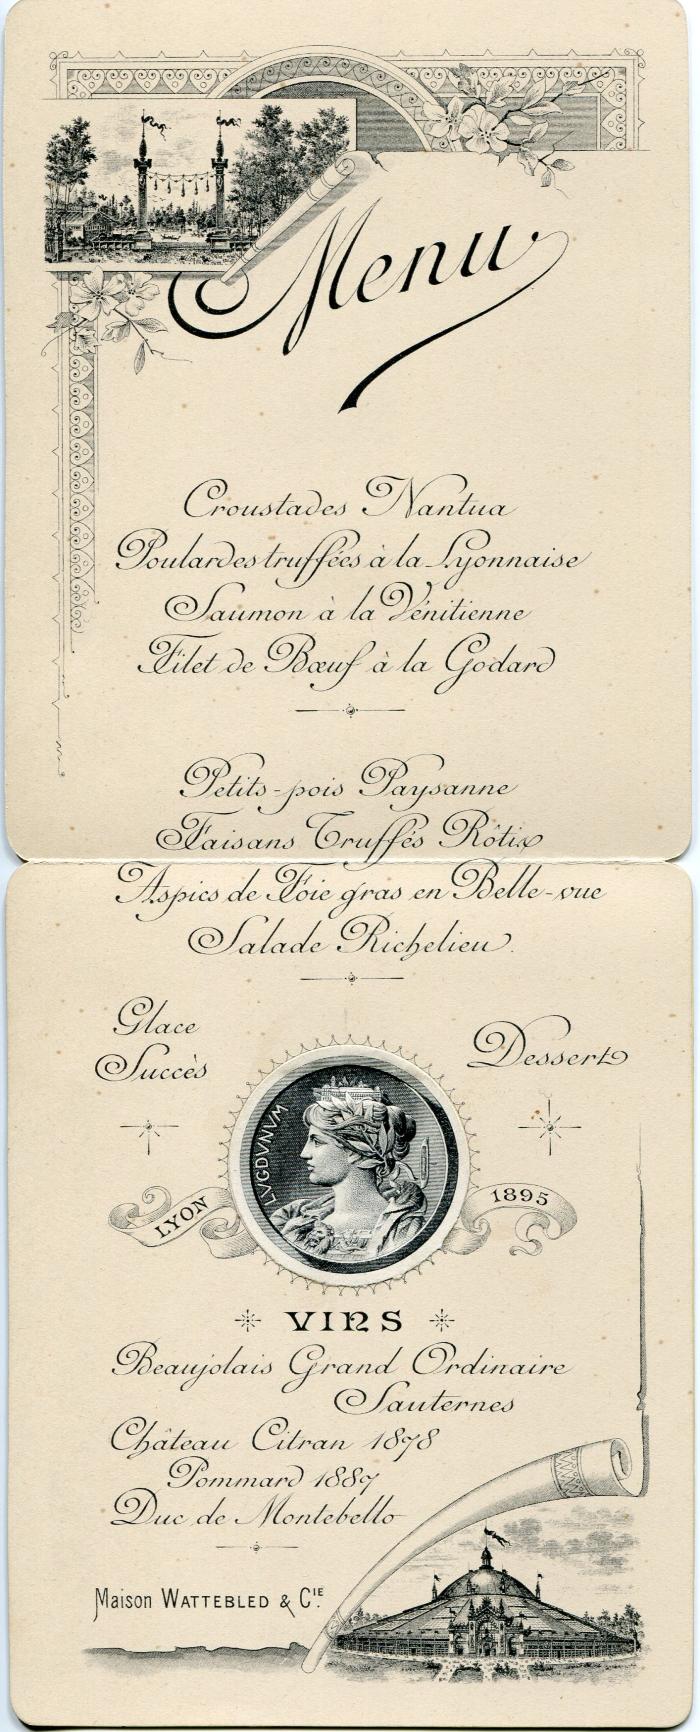 Menu
Croustades Nantua
Poulardes truffées à la Lyonnaise
Saumon à la Vénitienne
Filet de Bœuf à la Godard
Petits-pois Paysanne
Faisans Truffés Rôtis
Aspics de Foie gras en Belle-vue
Salade Richelieu.
Glace
Succès
Desserts
LVGDVNVM
LYON
1895
VINS
Beaujolais Grand Ordinaire
Sauternes
Château Citran 1878
Pommard 1887
Duc de Montebello
Maison WATTEBLED & CIE.